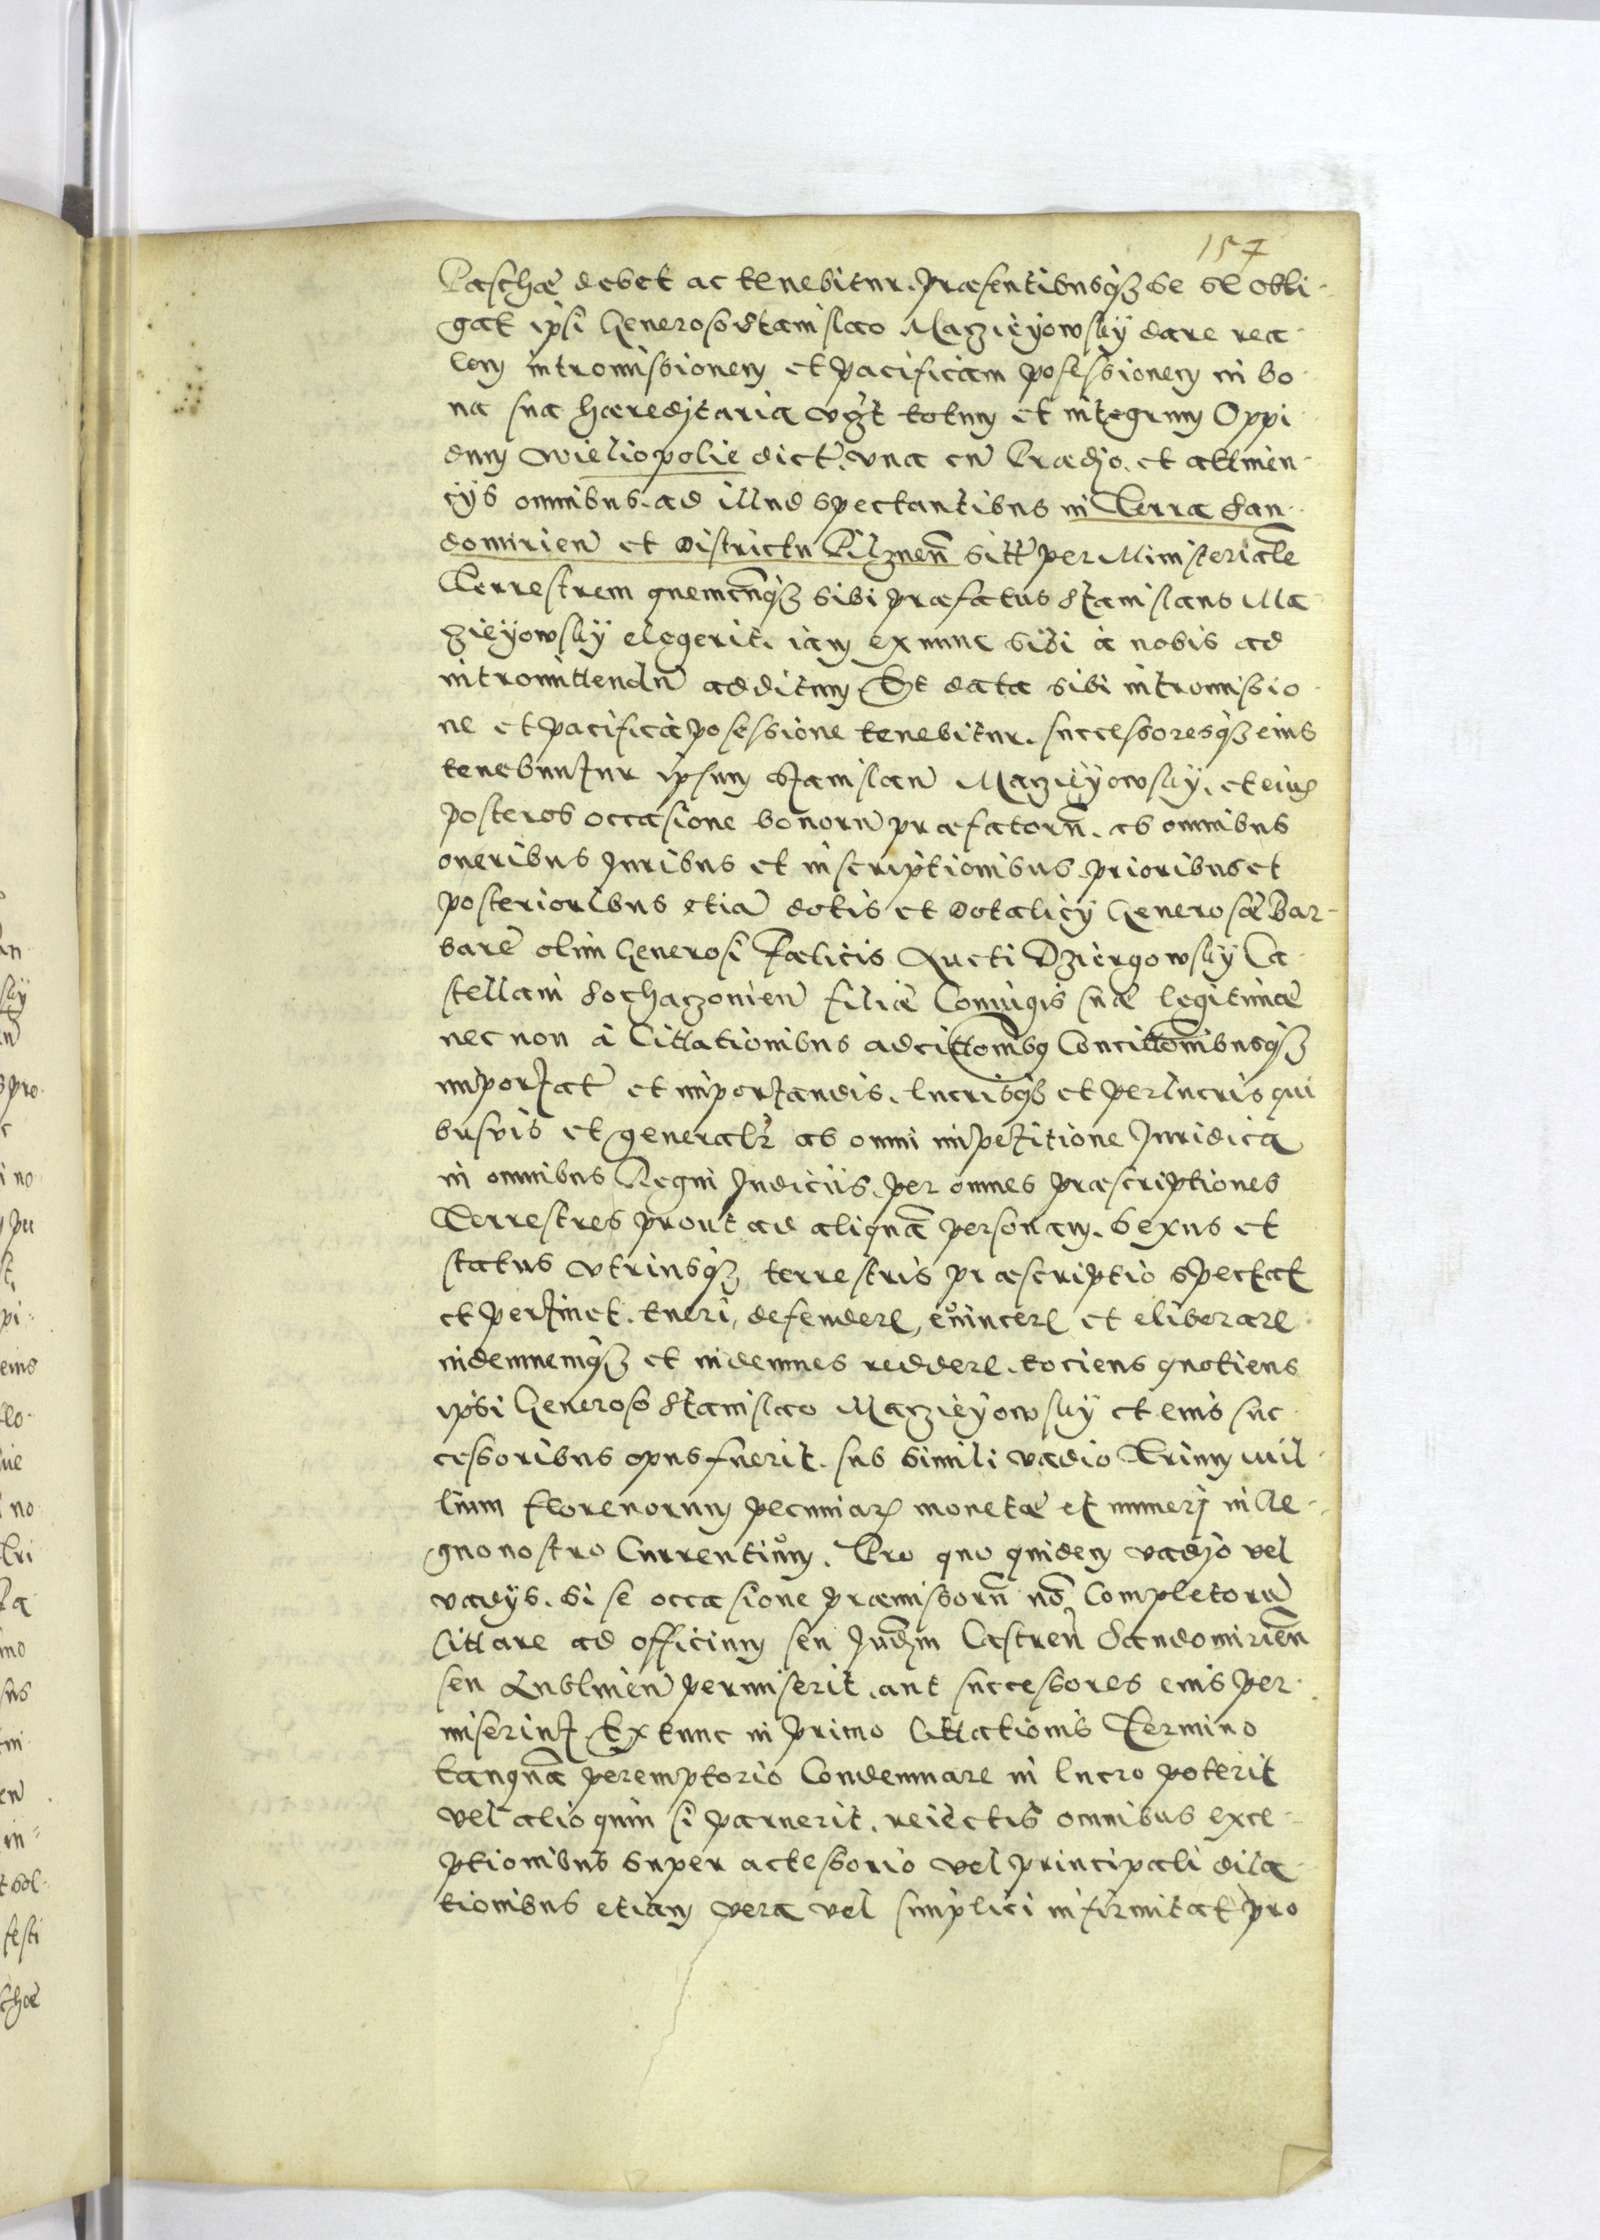 157
Paschæ debet ac tenebitur. Præsentibusq3 se se obli-
gat ipsi Generoso Stanislao Maczieyowsky dare rea-
lem intromissionem et pacificam possessionem in bo-
na sua hæreditaria vzt totum et integrum Oppi
dum Wieliopolie dict. vna cu Prædio. et attinen-
cÿs omnibus. ad illud spectantibus in Terra San-
domirien et Districtu Pilznen sitt per Ministeriale
Terrestrem quemcunq3 sibi præfatus Stanislaus Ma-
czieyowsky elegerit. iam ex nunc sibi à nobis ad
intromittendu additum Et data sibi intromissio-
ne et pacificà possessione tenebitur. successoresq3 eius
tenebuntur ipsum Stanislau Maczieyowsky. et eius
posteros occasione bonoru præfatoru. ab omnibus
oneribus Iuribus et inscriptionibus prioribus et
posterioribus etia dotis et dotalicÿ Generosæ Bar-
bare olim Generosi Fælicis Aucti Dziergowsky Ca-
stellani Sochaczouien filiæ Coniugis suæ legitimæ
nec non à Cittationibus adcittombus Concittonibusq3
importat et importandis. lucrisq3 et perlucris qui
busvis et generalr ab omni impetitione Iuridica
in omnibus Regni Iudiciis. per omnes præscriptiones
Terrestres prout ad aliqua personam. sexus et
status vtriusq3 terrestris præscriptio spectat
et pertinet. tueri, defendere, euincere et eliberare
indemnemq3 et indemnes reddere. tociens quotiens
ipsi Generoso Stanislao Maczieyowsky et eius suc-
cessoribus opus fuerit. sub simili vadio Trium mil-
lium florenorum pecuniar monetæ et numeri in Re-
gno nostro Currentium. Pro quo quidem vadio vel
vadÿs. si se occasione præmissoru no Completoru
Cittare ad officium seu Iudm Castren Sandomirien
seu Lublinen permiserit. aut successores eius per-
miserint Ex tunc in primo Cittationis Termino
tanqua peremptorio Condemnare in lucro poterit
vel alioquin si paruerit. reiectis omnibus exce-
ptionibus super accessorio vel principali dila-
tionibus etiam vera vel simplici infirmitat pro